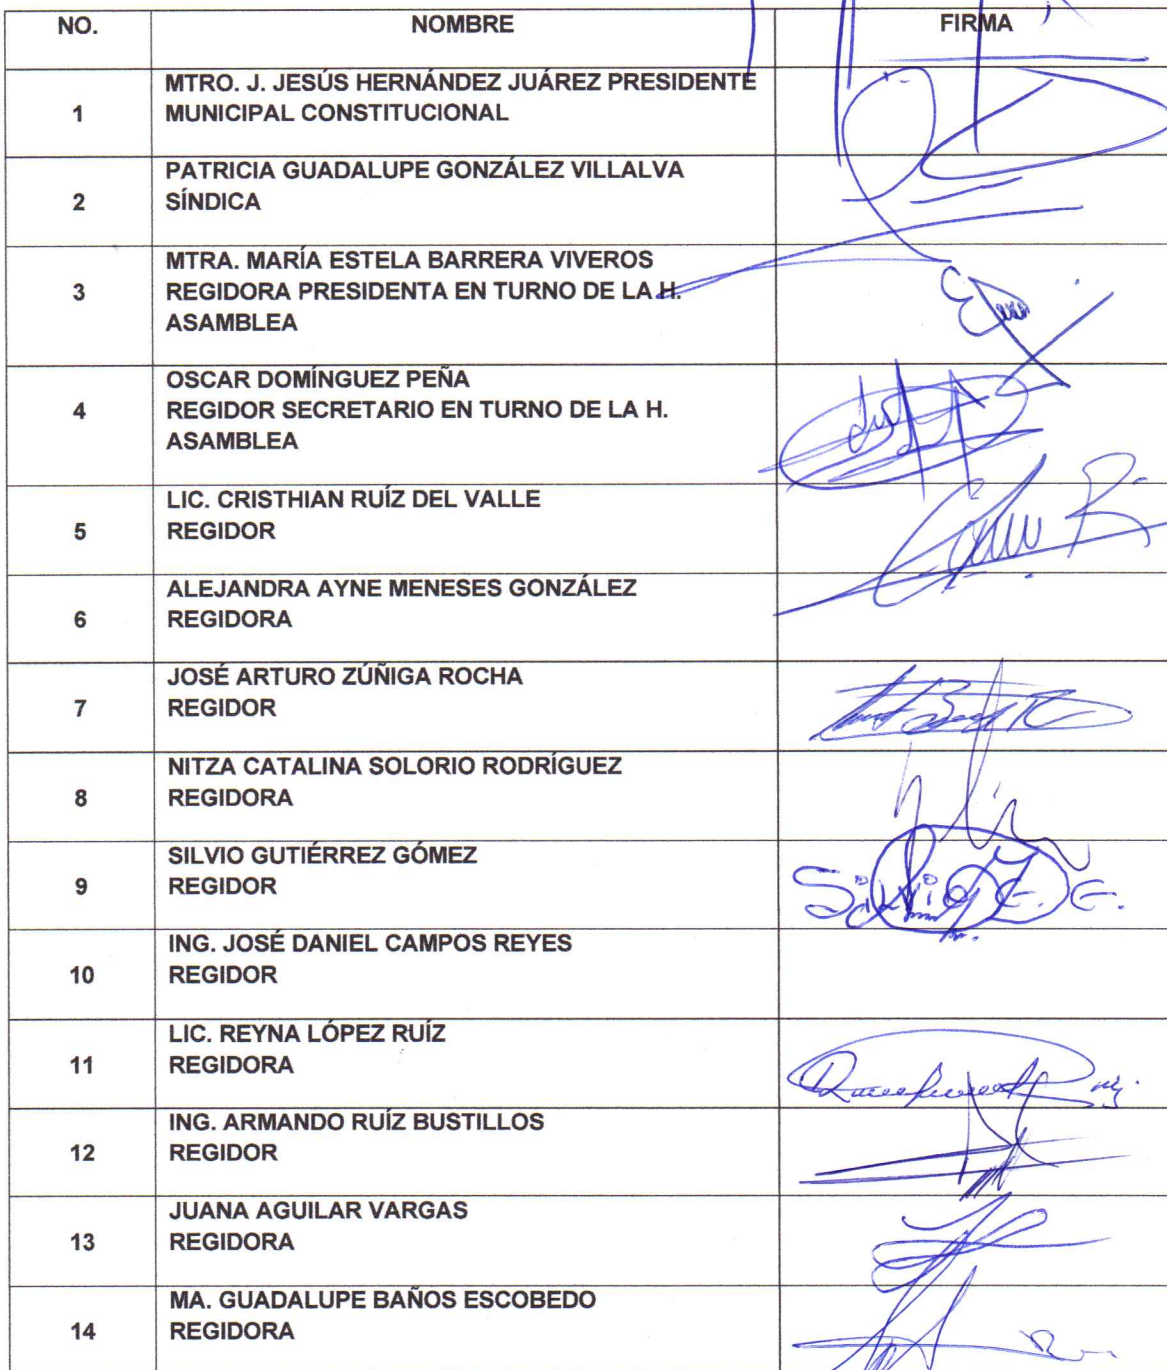 NO. NOMBRE FIRMA
MTRO. J. JESÚS HERNÁNDEZ JUÁREZ PRESIDENTE
1 MUNICIPAL CONSTITUCIONAL
PATRICIA GUADALUPE GONZÁLEZ VILLALVA
2 SÍNDICA
MTRA. MARÍA ESTELA BARRERA VIVEROS
3 REGIDORA PRESIDENTA EN TURNO DE LA H.
ASAMBLEA
OSCAR DOMÍNGUEZ PEÑA
4 REGIDOR SECRETARIO EN TURNO DE LA H.
ASAMBLEA
LIC. CRISTHIAN RUÍZ DEL VALLE
5 REGIDOR
ALEJANDRA AYNE MENESES GONZÁLEZ
6 REGIDORA
JOSÉ ARTURO ZÚÑIGA ROCHA
7 REGIDOR
NITZA CATALINA SOLORIO RODRÍGUEZ
8 REGIDORA
SILVIO GUTIÉRREZ GÓMEZ
9 REGIDOR Silvio G. G.
ING. JOSÉ DANIEL CAMPOS REYES
10 REGIDOR
LIC. REYNA LÓPEZ RUÍZ
11 REGIDORA
ING. ARMANDO RUÍZ BUSTILLOS
12 REGIDOR
JUANA AGUILAR VARGAS
13 REGIDORA
MA. GUADALUPE BAÑOS ESCOBEDO
14 REGIDORA